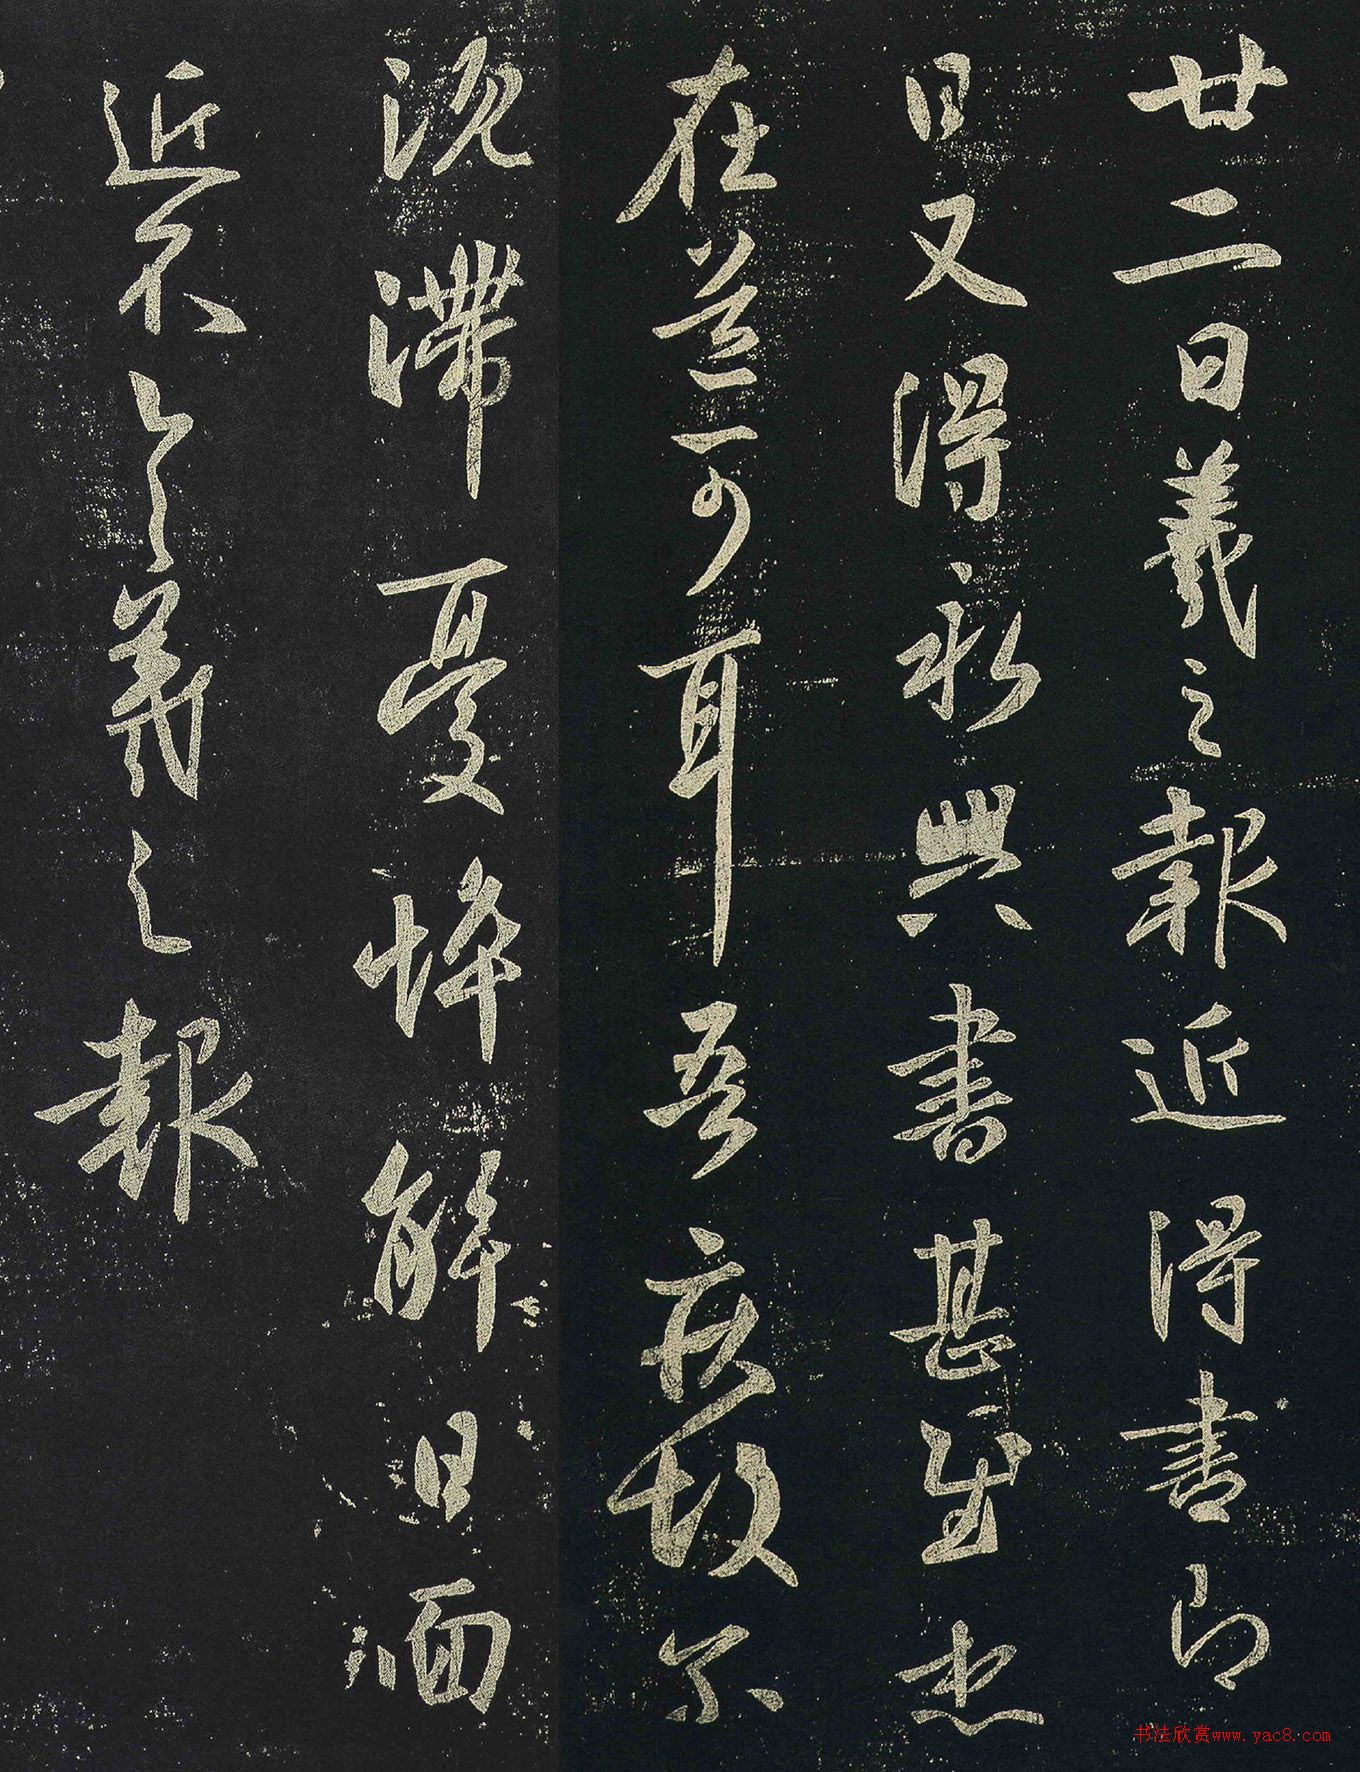 廿二日羲之報近得書即
日又得永興書甚慰想
在道可耳吾疾故尔
沉滯憂悴解日面
近不具羲之報
书法欣赏www.yac8.com